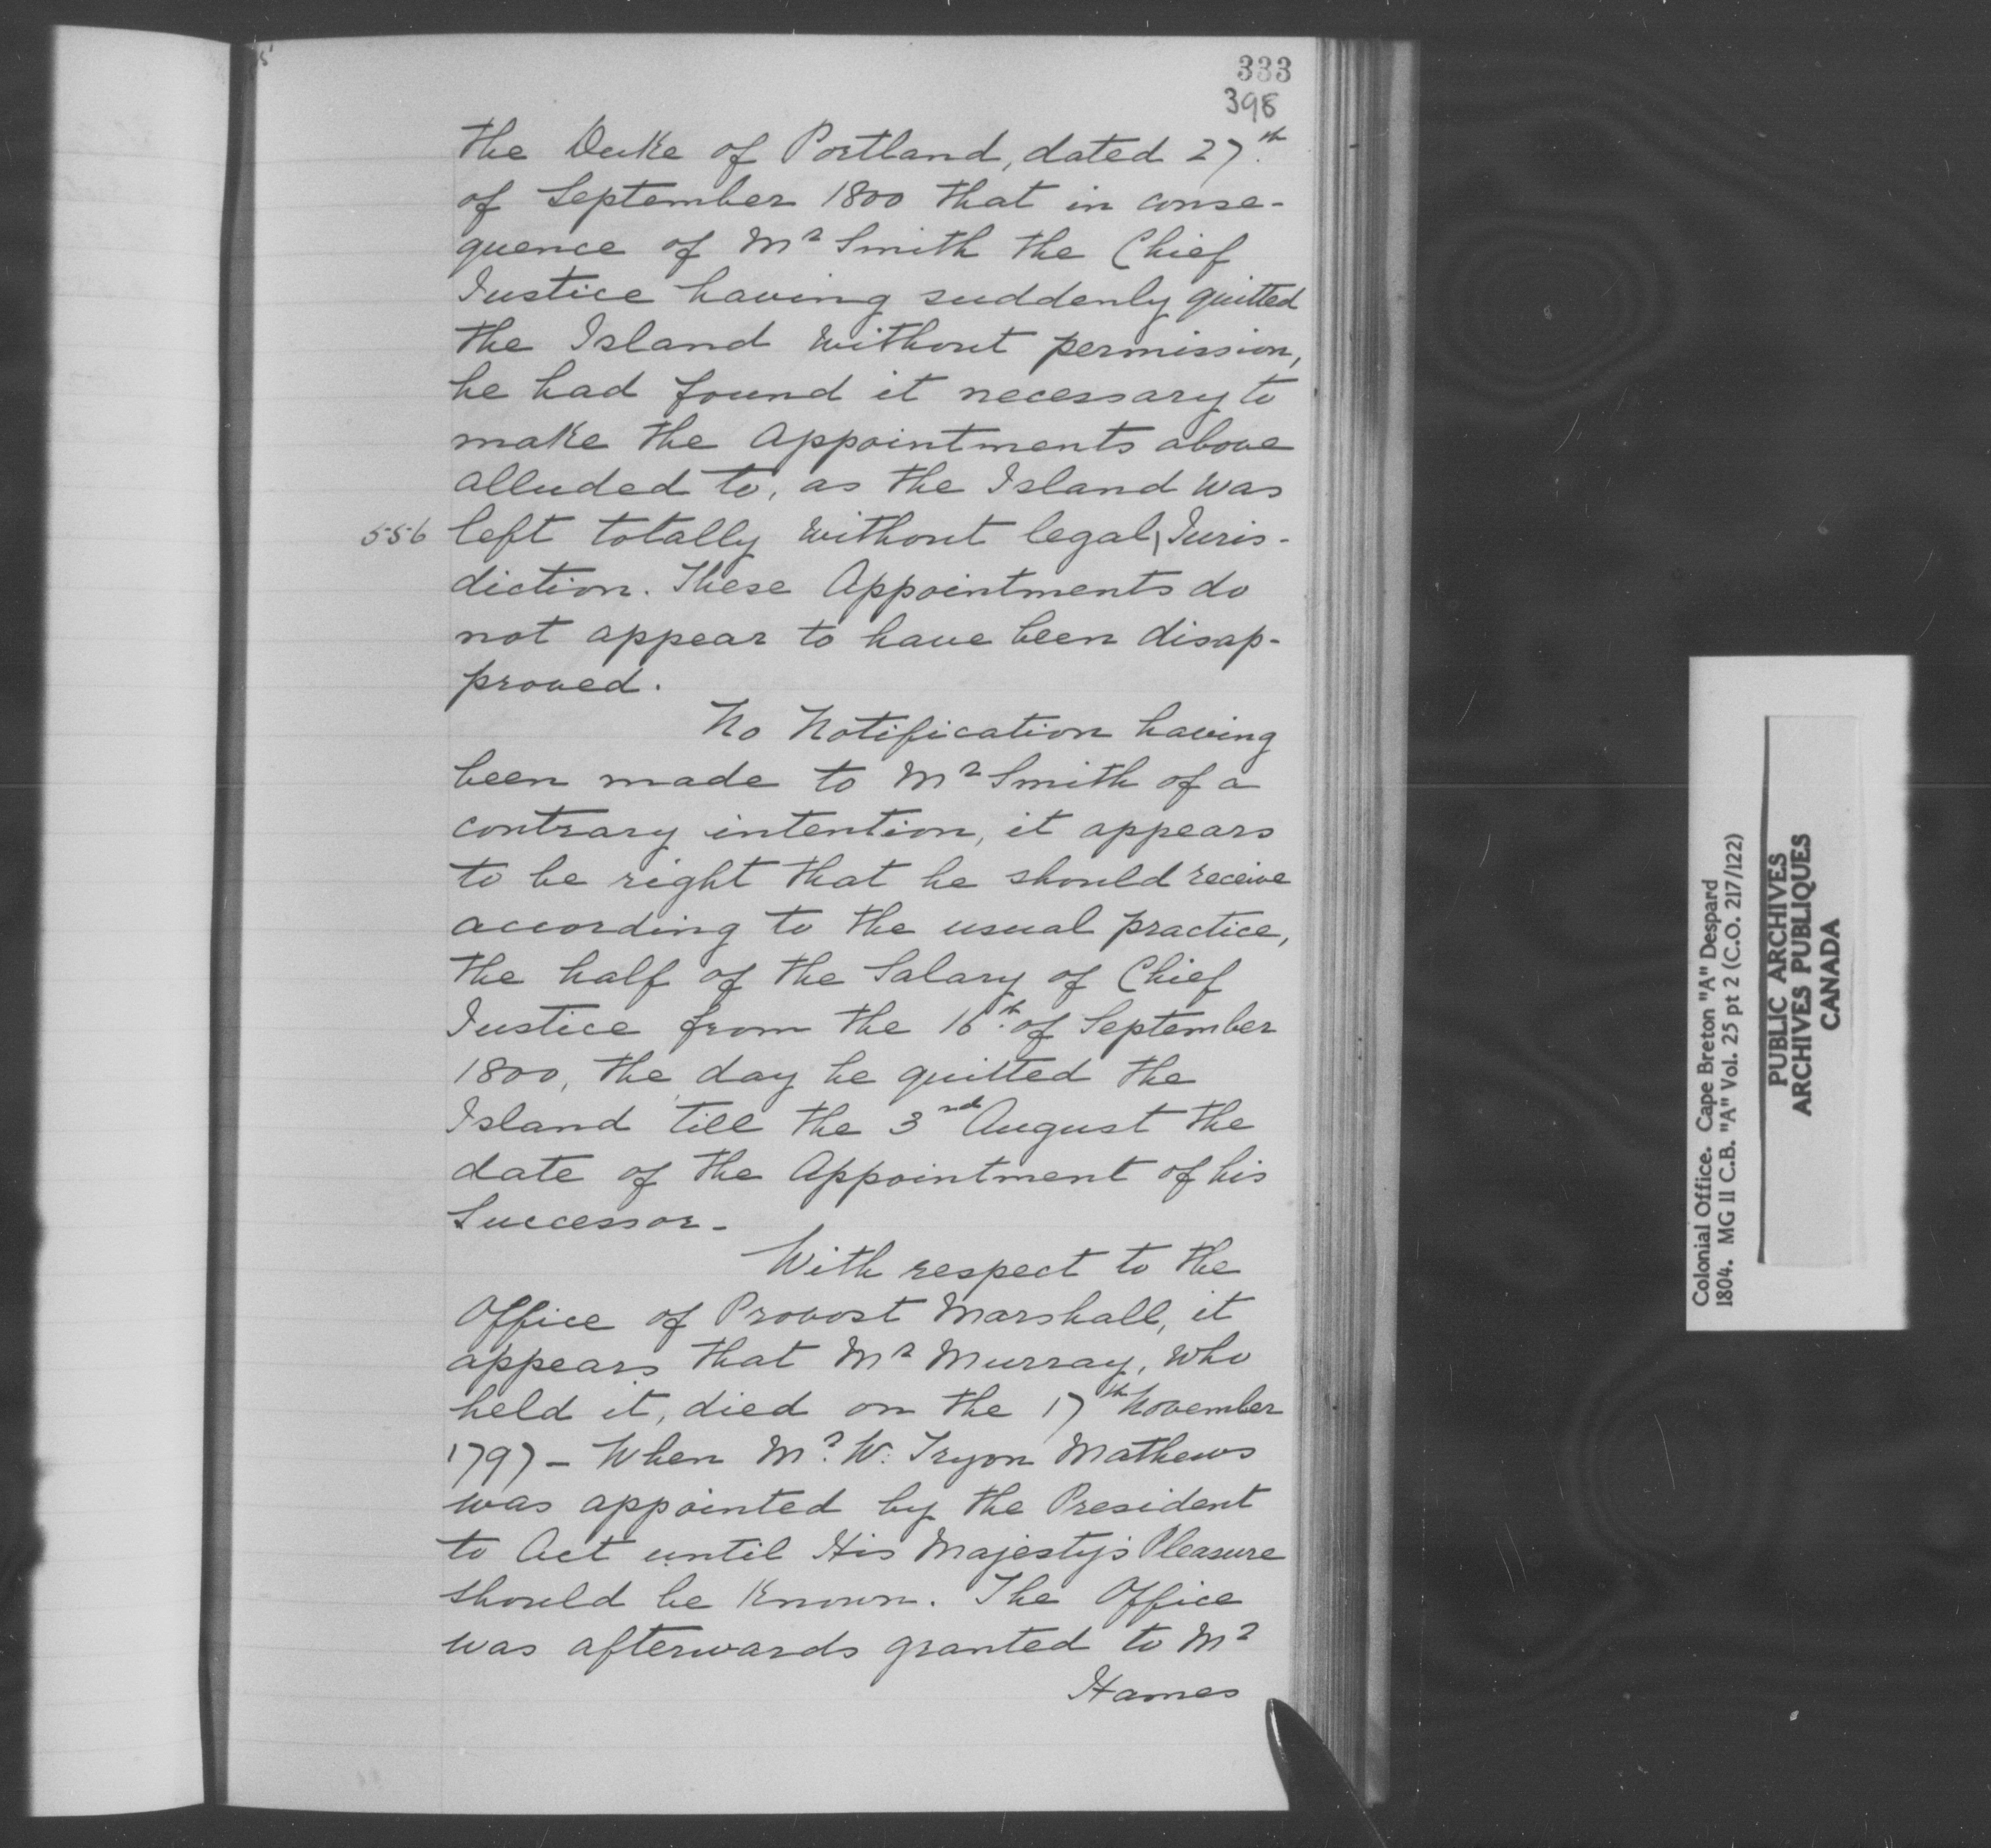 333
398
the Duke of Portland, dated 27th.
of September 1800 that in conse-
quence of Mr Smith the Chief
Justice having suddenly quitted
the Island without permission,
he had found it necessary to
make the Appointments above
alluded to, as the Island was
556 left totally without legal, Juris-
diction. These Appointments do
not appear to have been disap-
proved.
No Notification having
been made to Mr Smith of a
contrary intention, it appears
to be right that he should receive
according to the usual practice,
the half of the Salary of Chief
Justice from the 16th. of September
1800, the day he quitted the
Island till the 3rd August the
date of the Appointment of his
Successor-
With respect to the
Office of Provost Marshall, it
appears that Mr Murray, who
held it, died on the 17th November
1797 - When Mr. W. Tryon Mathews
was appointed by the President
to Act until His Majesty's Pleasure
should be Known. The Office
was afterwards granted to Mr
Hames
Colonial Office. Cape Breton "A" Despard
1804. MG 11 C.B. "A" Vol. 25 pt 2 (C.O. 217/122)
PUBLIC ARCHIVES
ARCHIVES PUBLIQUES
CANADA